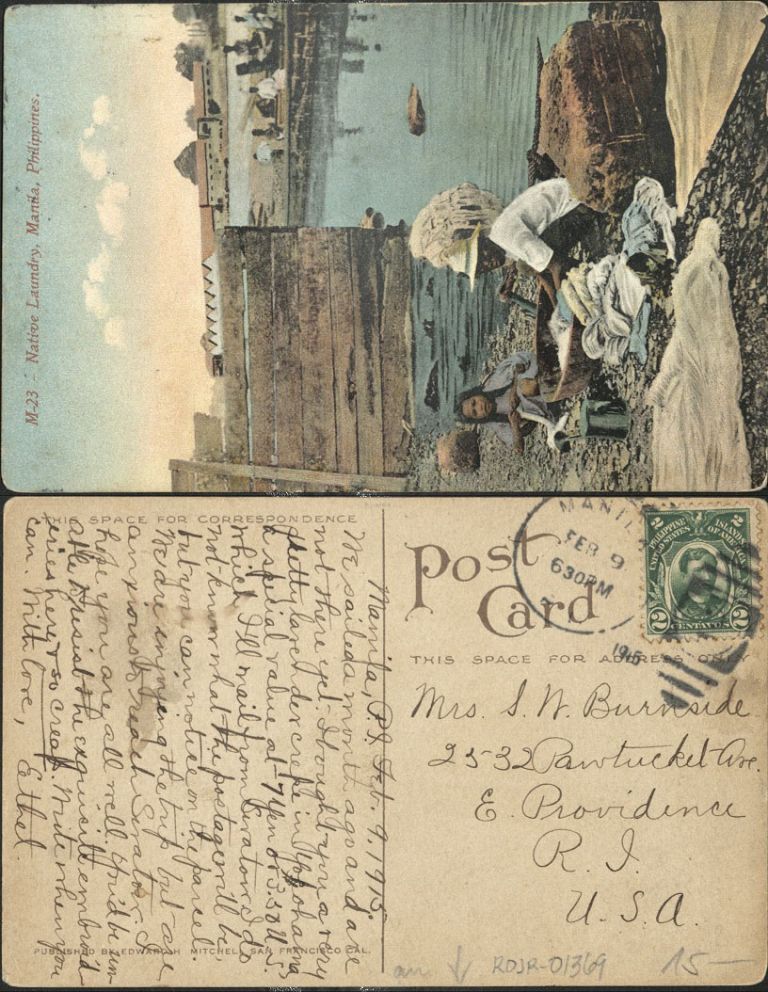 M-23 - Native Laundry, Manila, Philippines.
THIS SPACE FOR CORRESPONDENCE
Manila, P.I. Feb. 9, 1915
We sailed a month ago and are
not there yet. I bought you a very
pretty lavender crepe in Yokohama
a special value at 7 Yen or 3.50 U.S.
which I'll mail from Curaton. I do
not know what the postage will be,
but you can notice on the parcel.
We are enjoying the trip but are
anxious to reach
hope you are all well. You'd be un-
able to resist the exquisite embroid-
eries here, & so cheap. Write when you
can. With love, Ethel.
PUBLISHED BY EDWARD H. MITCHELL, SAN FRANCISCO, CAL.
Post
Card
MANILA
FEB 9
6 30 PM
1915
PHILIPPINE ISLANDS
UNITED STATES OF AMERICA
2 2
2 CENTAVOS 2
THIS SPACE FOR ADDRESS ONLY
Mrs. S. W. Burnside
2532 Pawtucket Ave.
E. Providence
R. I.
U. S. A.
RDJR-01369
15-